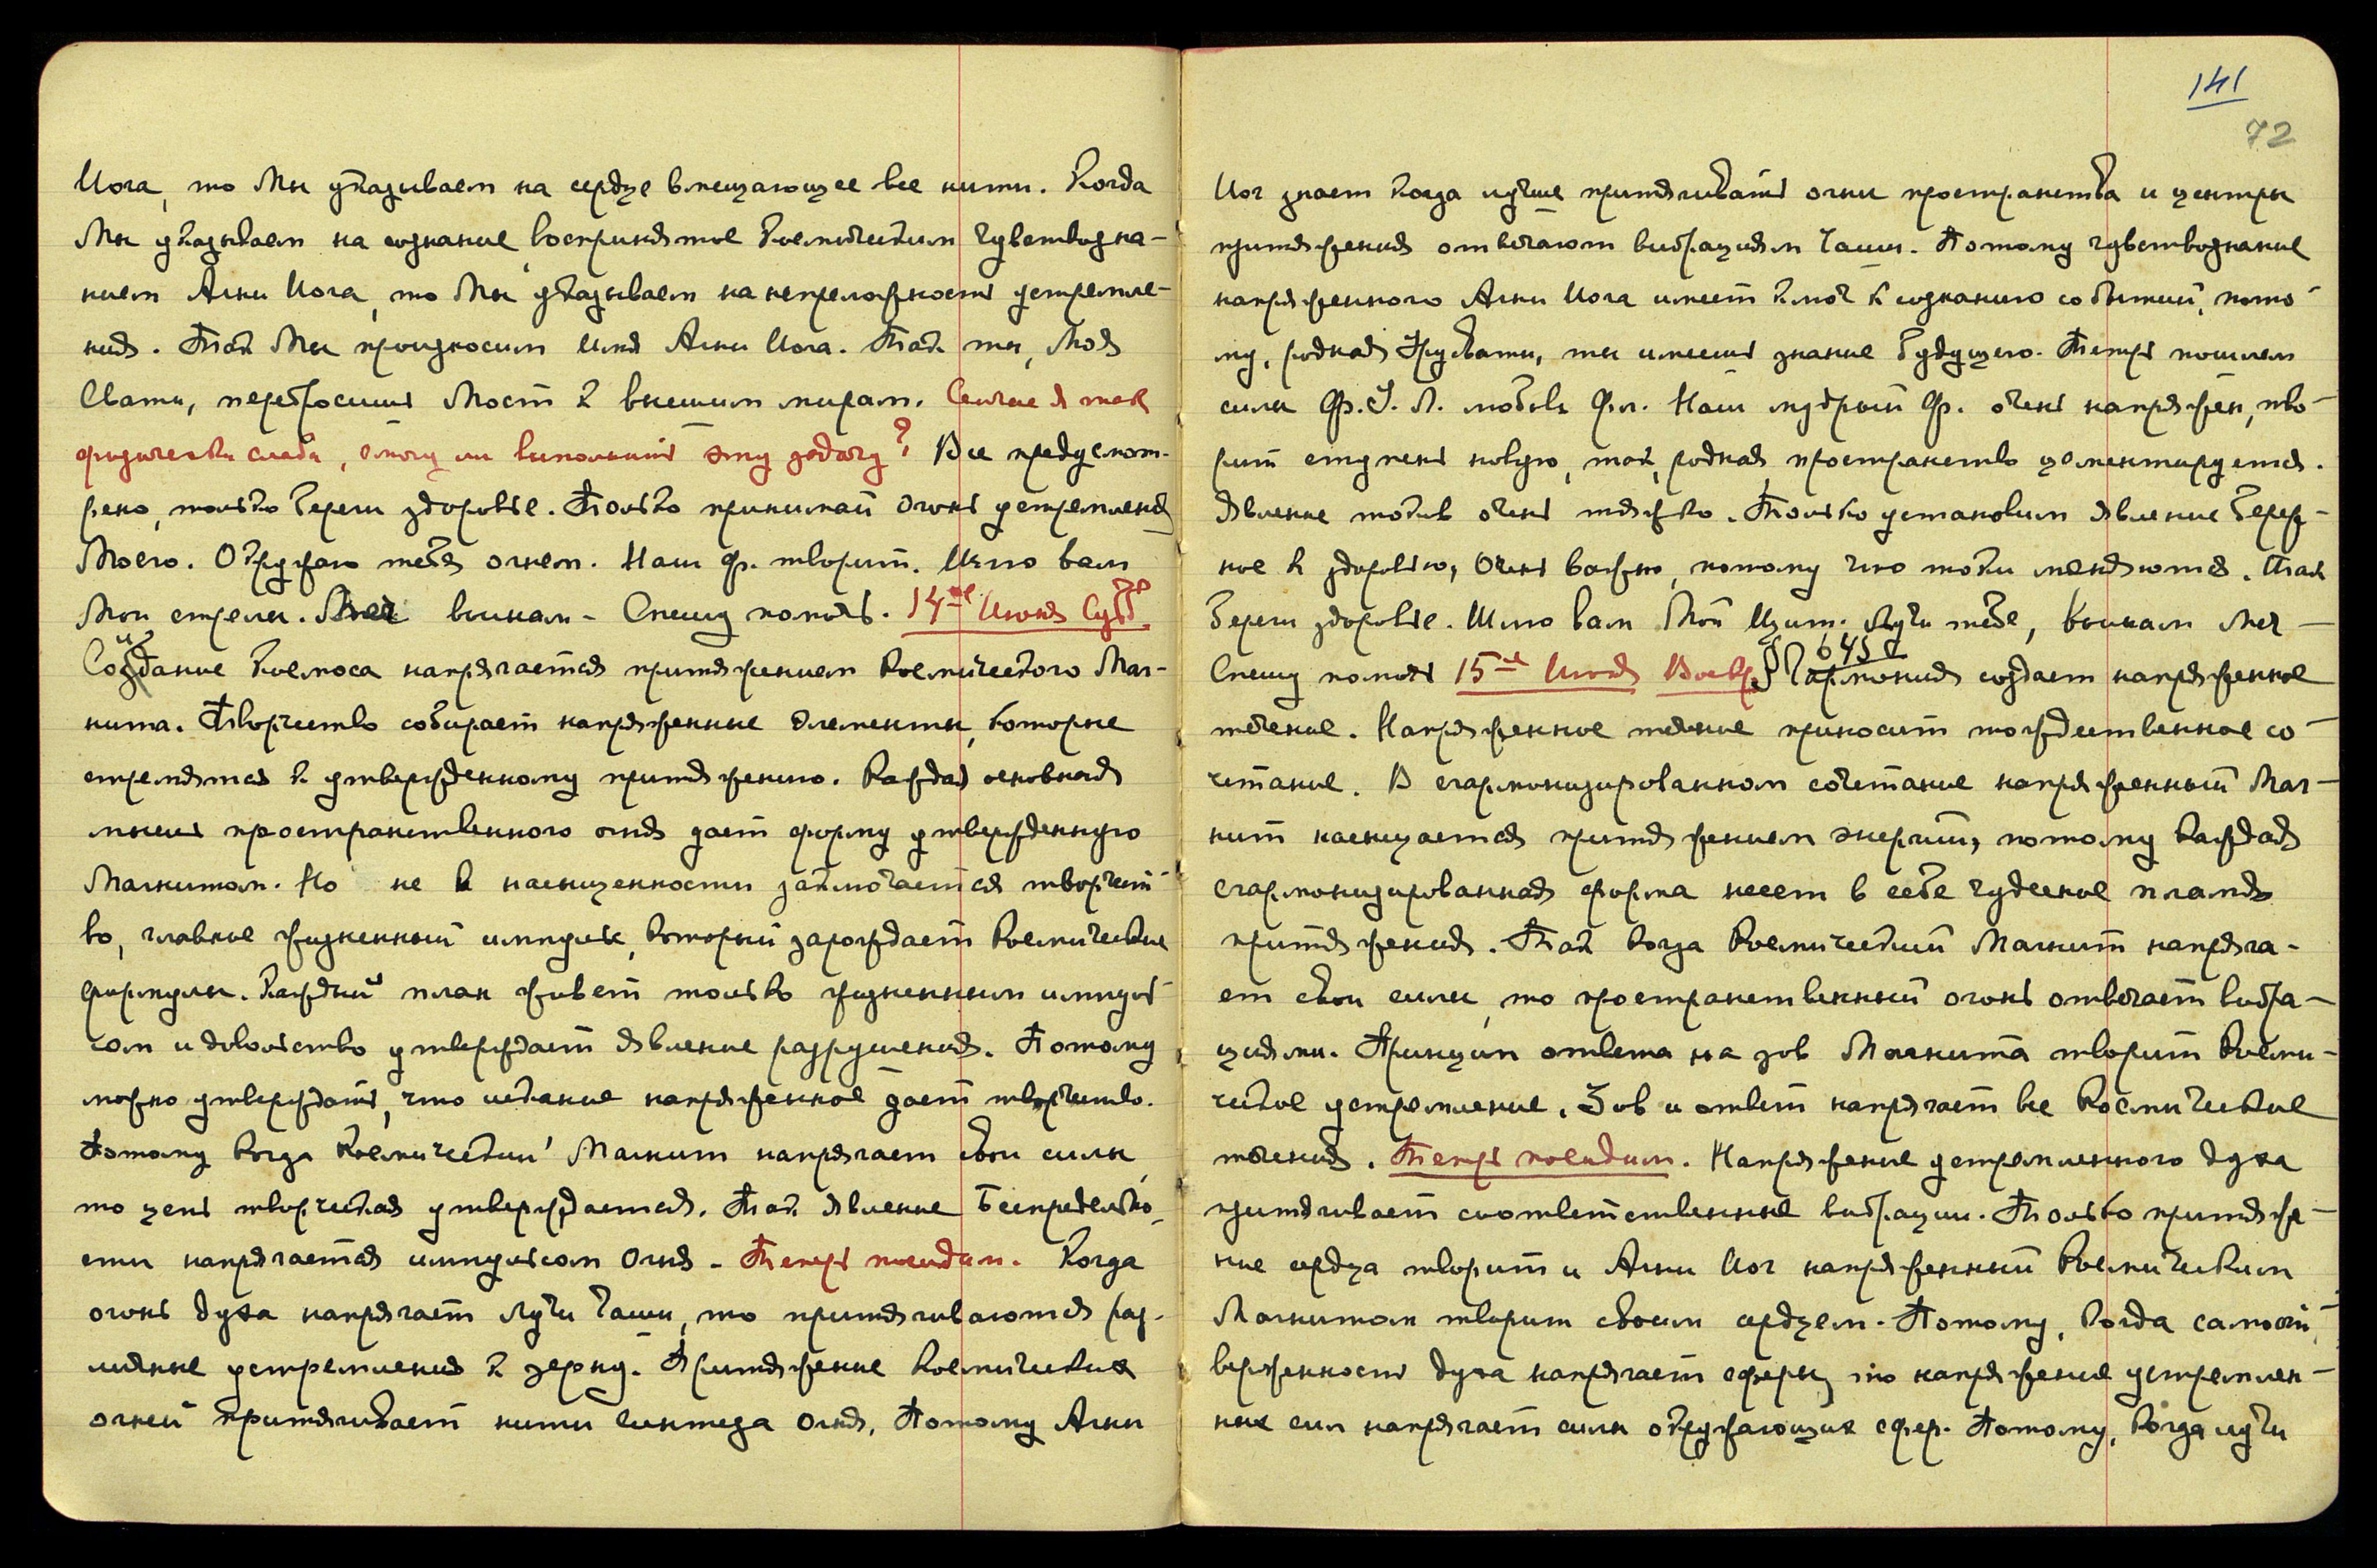 Йога, то Мы указываем на сердце вмещающее все нити. Когда
Мы указываем на сознание, воспринятое космическим чувствозна-
нием Агни Йога, то Мы указываем на непреложность устремле-
ния. Так Мы произносим Имя Агни Йога. Так ты, Моя
Свати, перебросишь Мост к высшим мирам. Сейчас я так
физически слаба, смогу ли выполнить эту задачу? Все предусмот-
рено, только береги здоровье. Только принимай Огонь устремления
Моего. Окружаю тебя огнем. Наш Ф. творит. Шлю вам
Мои стрелы. Меч воинам - Спешу помочь. 14-ое Июня Субб.
Создание Космоса напрягается притяжением Космического Маг-
нита. Творчество собирает напряженные элементы, которые
стремятся к утвержденному притяжению. Каждая основная
мысль пространственного огня дает форму утвержденную
Магнитом. Но не в насыщенности заключается творчест-
во, главное жизненный импульс, который зарождает Космические
формулы. Каждый план живет только жизненным импуль-
сом и довольство утверждает явление разрушения. Потому
можно утверждать, что искание напряженное дает творчество.
Потому когда Космический Магнит напрягает свои силы,
то цепь творческая утверждается. Так явление Беспредельно-
сти напрягается импульсом Огня - Теперь посидим. Когда
огонь духа напрягает лучи Чаши, то притягиваются раз-
личные устремления к зерну. Притяжение космических
огней притягивает нити синтеза Огня, Потому Агни
141
72
Йог знает когда лучше притягивать огни пространства и центры
притяжения отвечают вибрациям Чаши. Потому чувствознание
напряженного Агни Йога имеет ключ к сознанию событий, пото-
му, родная Урусвати, ты имеешь знание будущего. Теперь пошлем
силы Ф. У. Л. любовь Фл. Наш мудрый Ф. очень напряжен, тво-
рит ступень новую, так, родная, пространство цементируется.
Явление токов очень тяжко. Только установим явление береж-
ное к здоровью, Очень важно, потому что токи меняются. Так
береги здоровье. Шлю вам Мой Щит. Лучи тебе, воинам меч -
Спешу помочь 15-ое Июня Воскр. § 645 Гармония создает напряженное
течение. Напряженное течение приносит тождественное со-
четание. В сгармонизированном сочетание напряженный Маг-
нит насыщается притяжением энергии, потому каждая
сгармонизированная форма несет в себе чудесное пламя
притяжения. Так когда Космический Магнит напряга-
ет свои силы, то пространственный огонь отвечает вибра-
циями. Принцип ответа на зов Магнита творит Косми-
ческое устремление. Зов и ответ напрягает все Космические
течения. Теперь посидим. Напряжение устремленного духа
притягивает соответственные вибрации. Только притяже-
ние сердца творит и Агни Йог напряженный Космическим
Магнитом творит своим сердцем. Потому, когда самоот-
верженность духа напрягает сферы, то напряжение устремлен-
ных сил напрягает силы окружающих сфер. Потому, когда лучи